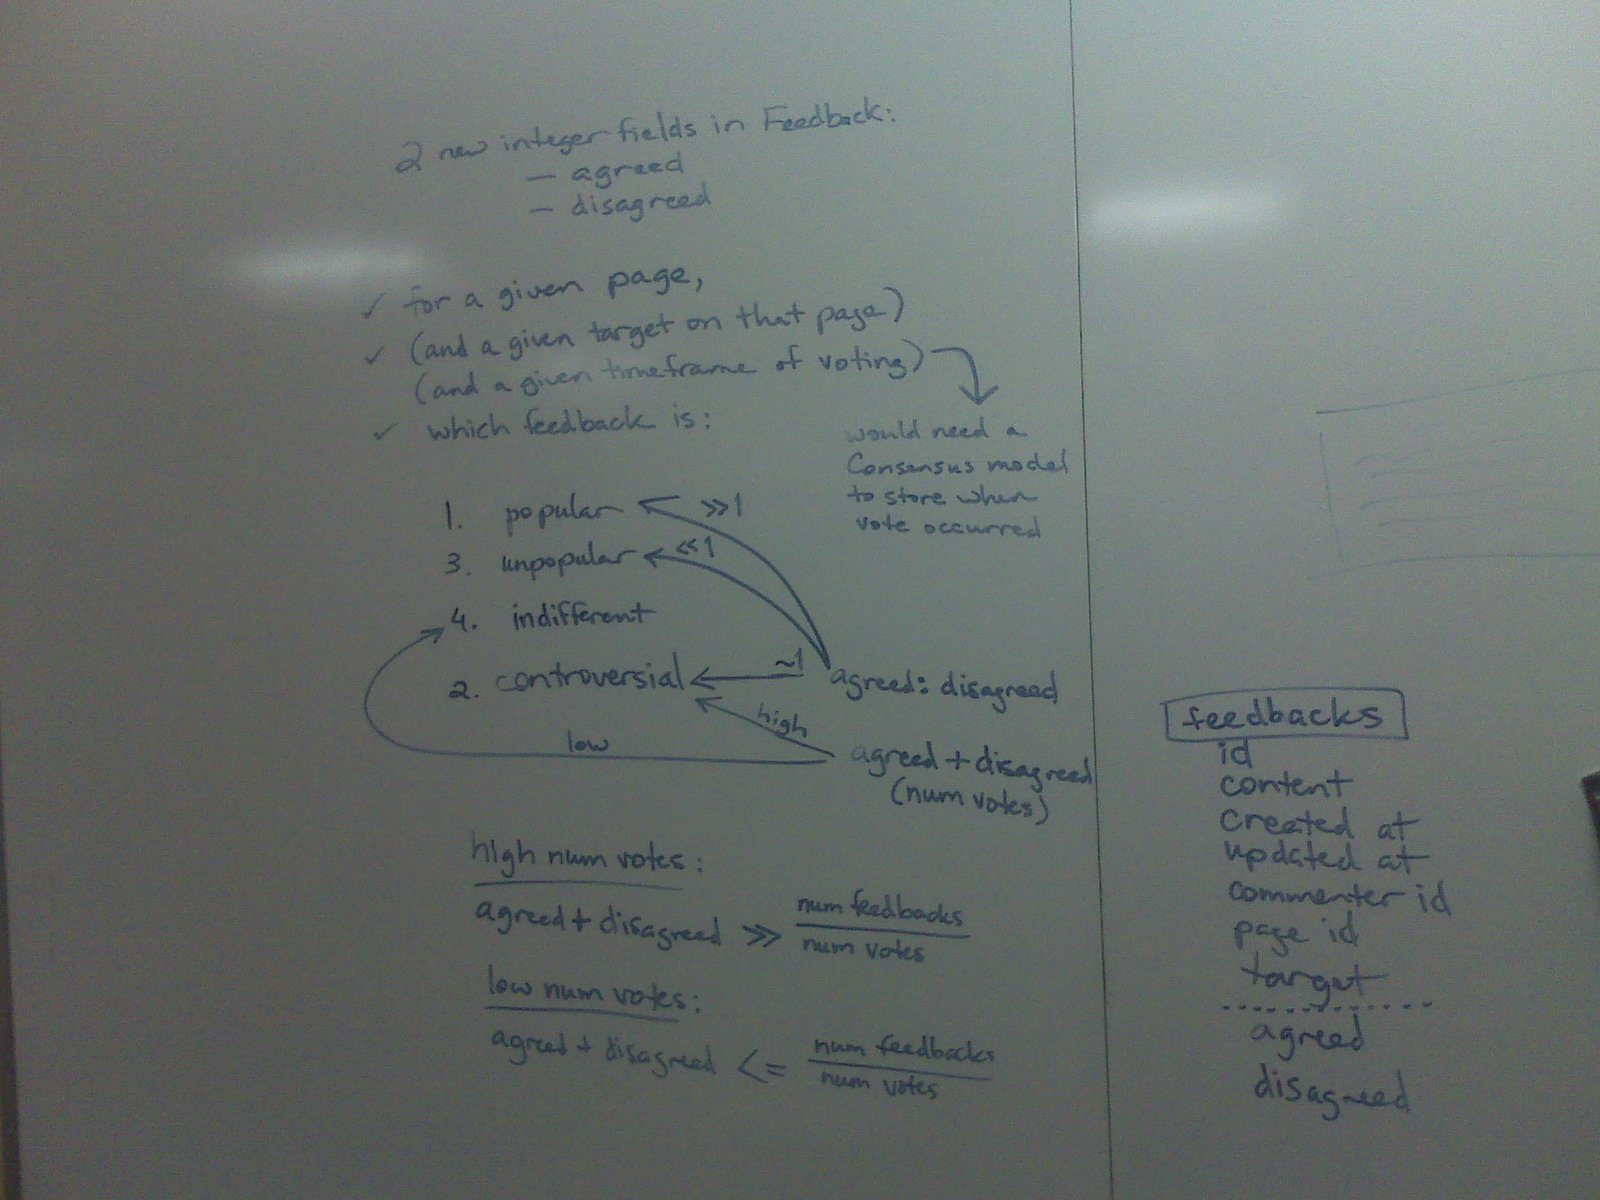 2 new integer fields in Feedback:
— agreed
— disagreed
✓ for a given page,
✓ (and a given target on that page)
(and a given timeframe of voting)
✓ which feedback is:
would need a
Consensus model
to store when
vote occurred
1. popular >>1
3. unpopular <<1
4. indifferent
2. controversial ~1 agreed: disagreed
high
low
agreed + disagreed
(num votes)
high num votes:
agreed + disagreed >> num feedbacks
num votes
low num votes:
agreed + disagreed <= num feedbacks
num votes
feedbacks
id
content
created at
updated at
commenter id
page id
target
agreed
disagreed